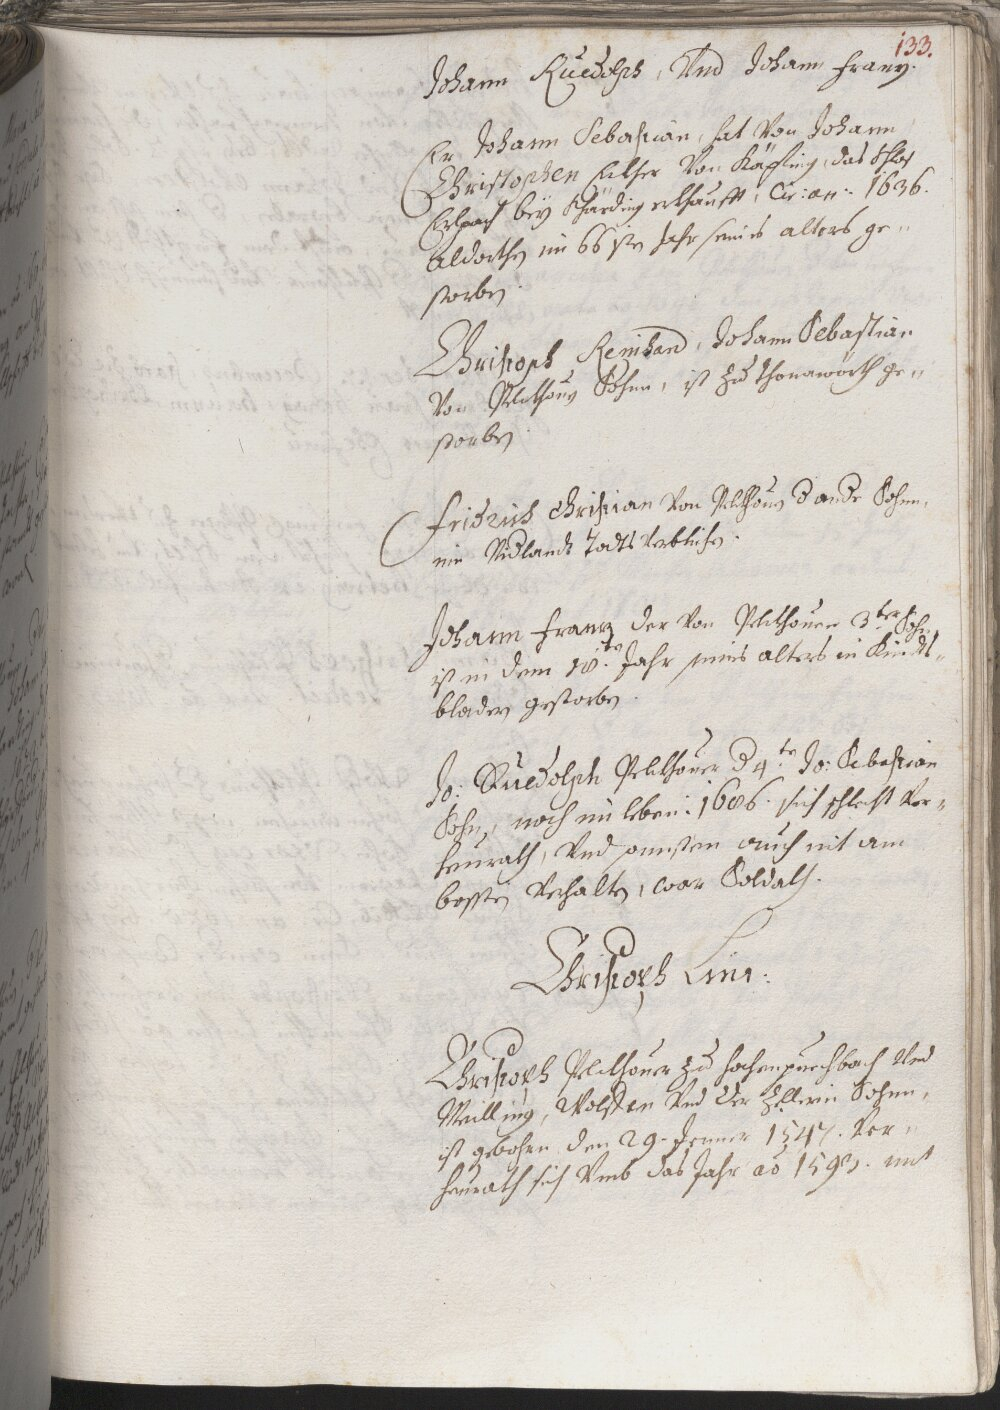 133.
Johann Ruedolph, Und Johann Franz.
Er Johann Sebastian, hat Von Johann
Christophen Von das Schloß
Erlpach beÿ Schärding erkhaufft, Cir: an: 1636.
aldorthen im 66 sten Jahr seines alters ge„
storben.
Christoph Reinhard, Johann Sebastian
Von Pelkhouen Sohn, ist zu thonawörth ge„
storben.
Fridrich Christian Von Pelkhouen d ande Sohn,
im Nidlandt Todts Verblichen.
Johann Franz der Von Pelkhouen 3ter Sohn
ist in dem 18.ten Jahr seines alters in Kindts„
bladern gestorben.
Jo: Ruedolph Pelkhouer d 4.te Jo: Sebastian
Sohn, noch im leben: 1686. sich schlecht Ver„
heurath, Und sonsten auch nit am
besten Verhalten, war Soldath.
Christoph Lini:
Christoph Pelkhouer zu hochenpuechbach Und
Weilling, Wolffen Und der Zellerin Sohn,
ist gebohrn den 29. Jenner 1547. Ver„
heurath sich Umb das Jahr ao 1593. mit